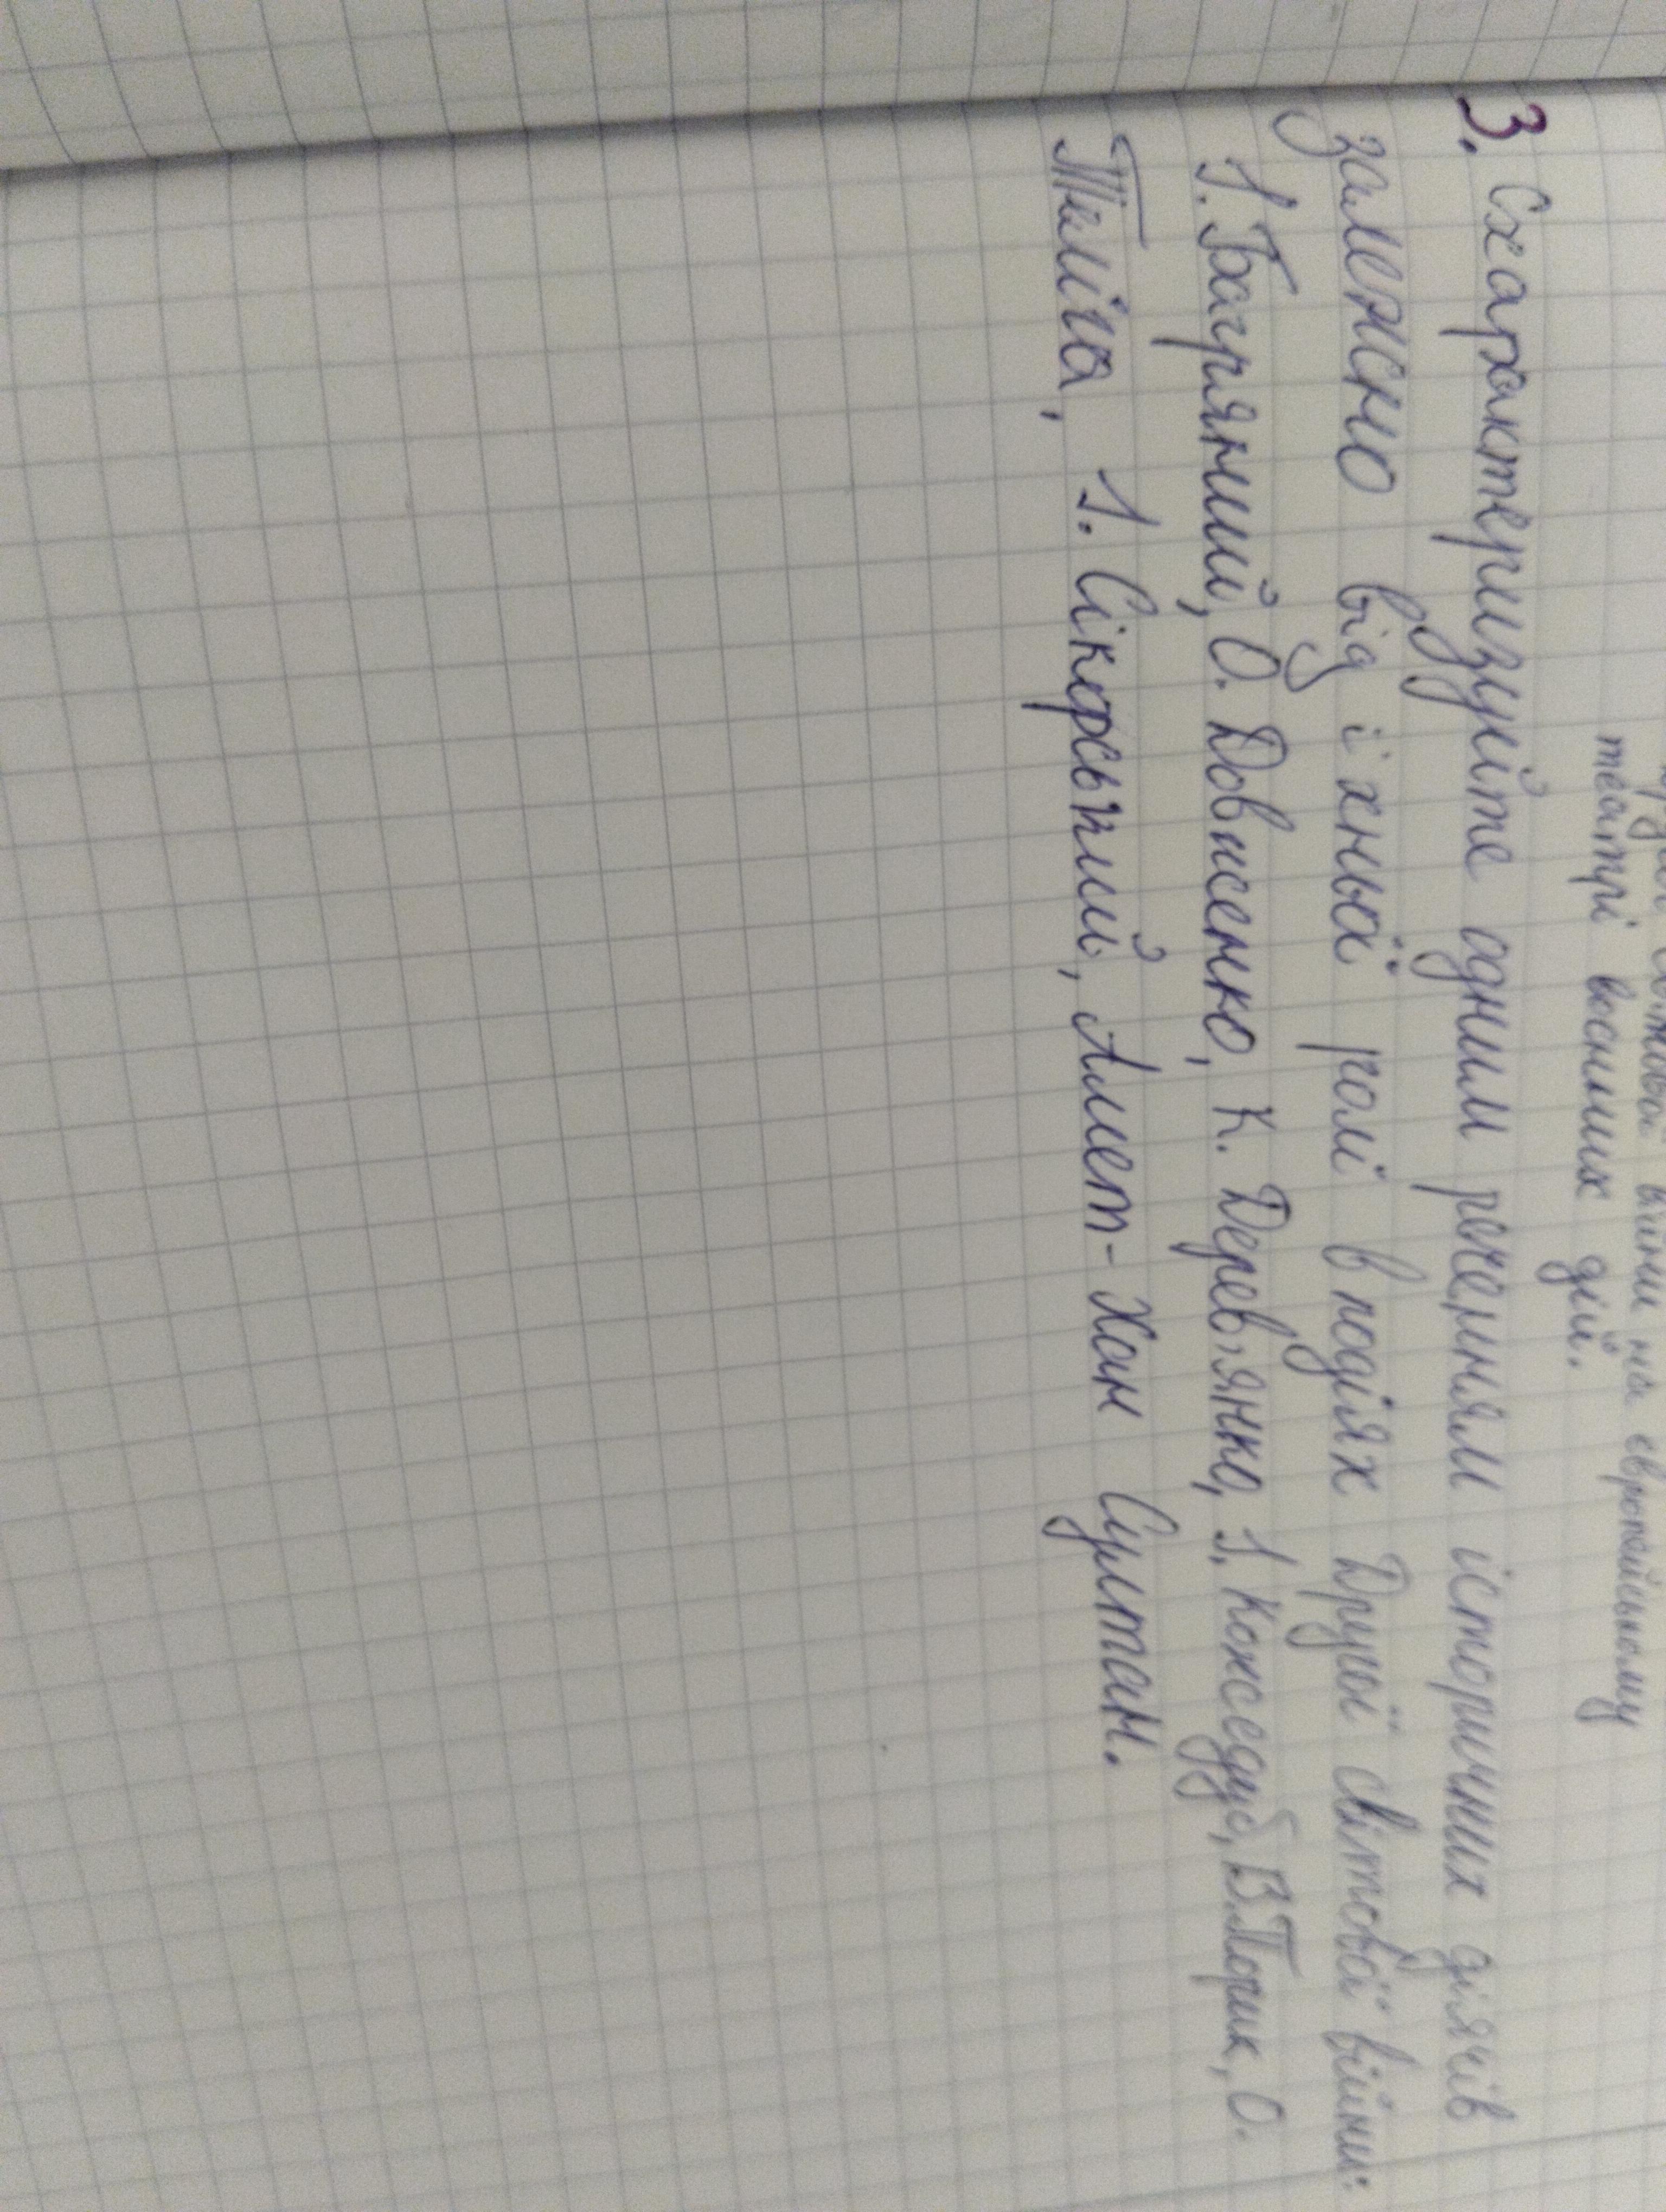 світової війни на європейському
театрі воєнних дій.
3. Схарактеризуйте одним реченням історичних діячів
залежно від їхньої ролі в подіях Другої світової війни:
І. Багряний, О. Довженко, К. Дерев'янко, І. Кожедуб, В. Порик, О.
Теліга, І. Сікорський, Амет-Хан Султан.